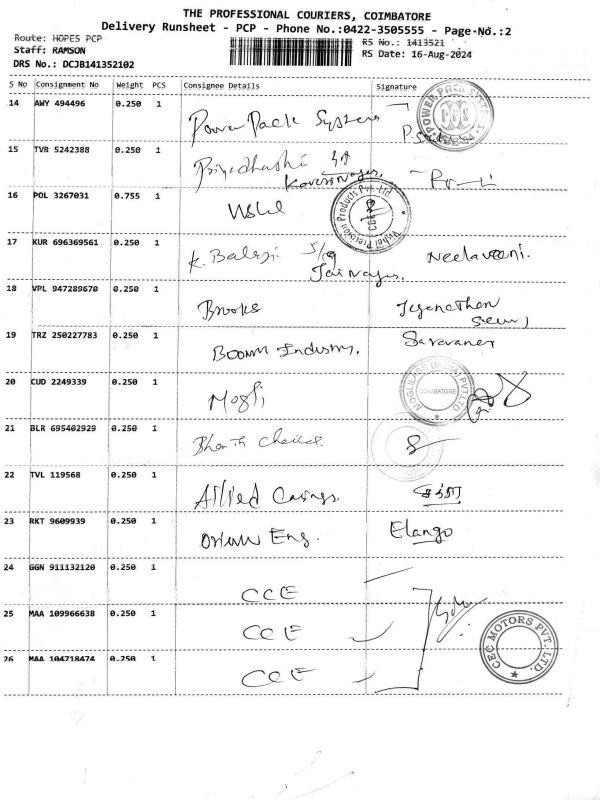 THE PROFESSIONAL COURIERS, COIMBATORE
Delivery Runsheet - PCP - Phone No.:0422-3505555 - Page-No.:2
Route: HOPES PCP RS No.: 1413521
Staff: RAMSON RS Date: 16-Aug-2024
DRS No.: DCJB141352102
S No Consignment No Weight PCS Consignee Details Signature
14 AWY 494496 0.250 1 Power Pack Systems
POWER PACK SYSTEMS
15 TVR 5242388 0.250 1
16 POL 3267031 0.755 1
Vishal Precision Products Pvt. Ltd
17 KUR 696369561 0.250 1 K. Balaji Neelaveni.
Jai Nagar.
18 VPL 947289670 0.250 1 Brooks
19 TRZ 250227783 0.250 1 Boomm Industry.
20 CUD 2249339 0.250 1 Mogli
COIMBATORE
21 BLR 695402929 0.250 1
22 TVL 119568 0.250 1 Allied Casings.
23 RKT 9609939 0.250 1 Eng. Elango
24 GGN 911132120 0.250 1 CCE
25 MAA 109966638 0.250 1 CCE
26 MAA 104718474 0.250 1 CCE
CEC MOTORS PVT. LTD.